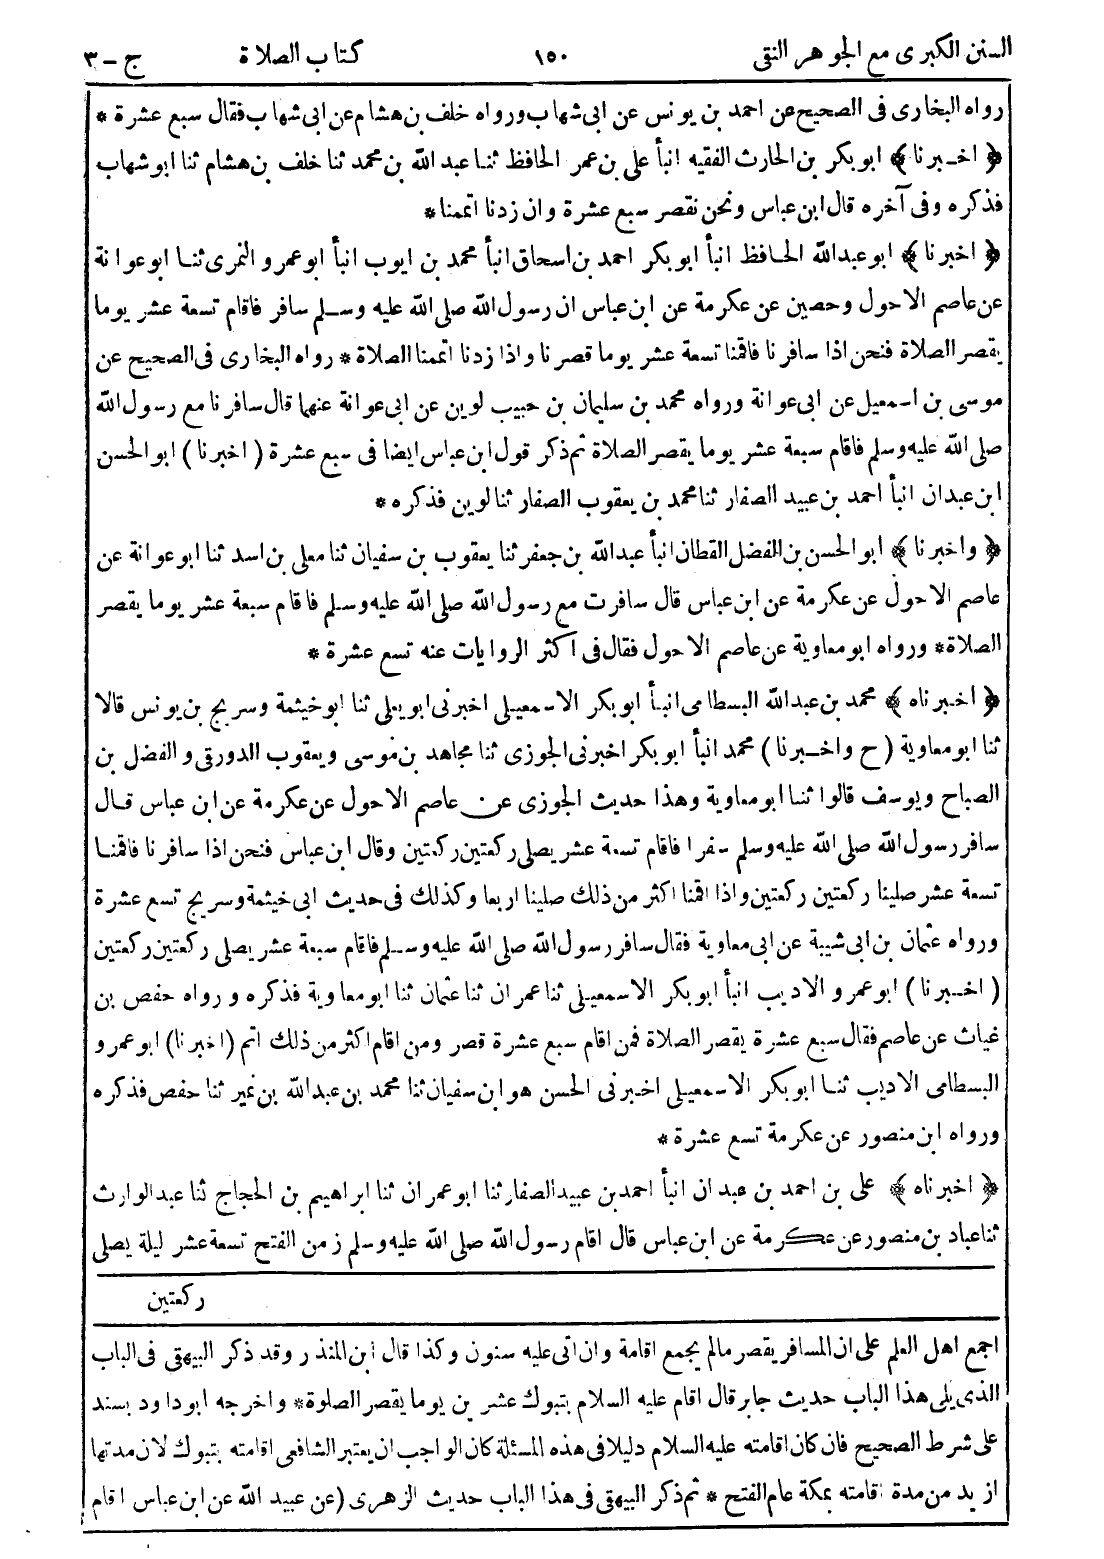 السنن الكبرى مع الجوهر النقى ١٥٠ كتاب الصلاة ج - ٣
رواه البخارى فى الصحيح عن احمد بن يونس عن ابى شهاب ورواه خلف بن هشام عن ابى شهاب فقال سبع عشرة *
﴿ اخبرنا ﴾ ابو بكر بن الحارث الفقيه انبأ على بن عمر الحافظ ثنا عبد الله بن محمد ثنا خلف بن هشام ثنا ابو شهاب
فذكره وفى آخره قال ابن عباس ونحن نقصر سبع عشرة وان زدنا اتممنا *
﴿ اخبرنا ﴾ ابو عبد الله الحافظ انبأ ابو بكر احمد بن اسحاق انبأ محمد بن ايوب انبأ ابو عمرو النمرى ثنا ابو عوانة
عن عاصم الاحول وحصين عن عكرمة عن ابن عباس ان رسول الله صلى الله عليه وسلم سافر فاقام تسعة عشر يوما
يقصر الصلاة فنحن اذا سافرنا فاقمنا تسعة عشر يوما قصرنا واذا زدنا اتممنا الصلاة * رواه البخارى فى الصحيح عن
موسى بن اسمعيل عن ابى عوانة ورواه محمد بن سليمان بن حبيب لوين عن ابى عوانة عنهما قال سافرنا مع رسول الله
صلى الله عليه وسلم فاقام سبعة عشر يوما يقصر الصلاة ثم ذكر قول ابن عباس ايضا فى سبع عشرة ( اخبرنا ) ابو الحسن
ابن عبدان انبأ احمد بن عبيد الصفار ثنا محمد بن يعقوب الصفار ثنا لوين فذكره *
﴿ واخبرنا ﴾ ابو الحسن بن الفضل القطان انبأ عبد الله بن جعفر ثنا يعقوب بن سفيان ثنا معلى بن اسد ثنا ابو عوانة عن
عاصم الاحول عن عكرمة عن ابن عباس قال سافرت مع رسول الله صلى الله عليه وسلم فاقام سبعة عشر يوما يقصر
الصلاة * ورواه ابو معاوية عن عاصم الاحول فقال فى اكثر الروايات عنه تسع عشرة *
﴿ اخبرناه ﴾ محمد بن عبد الله البسطامى انبأ ابو بكر الاسمعيلى اخبرنى ابو يعلى ثنا ابو خيثمة وسريج بن يونس قالا
ثنا ابو معاوية ( ح واخبرنا ) محمد انبأ ابو بكر اخبرنى الجوزى ثنا مجاهد بن موسى ويعقوب الدورقى والفضل بن
الصباح ويوسف قالوا ثنا ابو معاوية وهذا حديث الجوزى عن عاصم الاحول عن عكرمة عن ابن عباس قال
سافر رسول الله صلى الله عليه وسلم سفرا فاقام تسعة عشر يصلى ركعتين ركعتين وقال ابن عباس فنحن اذا سافرنا فاقمنا
تسعة عشر صلينا ركعتين ركعتين واذا اقمنا اكثر من ذلك صلينا اربعا وكذلك فى حديث ابى خيثمة وسريج تسع عشرة
ورواه عثمان بن ابى شيبة عن ابى معاوية فقال سافر رسول الله صلى الله عليه وسلم فاقام سبعة عشر يصلى ركعتين ركعتين
( اخبرنا ) ابو عمرو الاديب انبأ ابو بكر الاسمعيلى ثنا عمران ثنا عثمان ثنا ابو معاوية فذكره ورواه حفص بن
غياث عن عاصم فقال سبع عشرة يقصر الصلاة فمن اقام سبع عشرة قصر ومن اقام اكثر من ذلك اتم ( اخبرنا ) ابو عمرو
البسطامى الاديب ثنا ابو بكر الاسمعيلى اخبرنى الحسن هو ابن سفيان ثنا محمد بن عبد الله بن نمير ثنا حفص فذكره
ورواه ابن منصور عن عكرمة تسع عشرة *
﴿ اخبرناه ﴾ على بن احمد بن عبدان انبأ احمد بن عبيد الصفار ثنا ابو عمران ثنا ابراهيم بن الحجاج ثنا عبد الوارث
ثنا عباد بن منصور عن عكرمة عن ابن عباس قال اقام رسول الله صلى الله عليه وسلم زمن الفتح تسعة عشر ليلة يصلى
ركعتين
اجمع اهل العلم على ان المسافر يقصر مالم يجمع اقامة وان اتى عليه سنون وكذا قال ابن المنذر وقد ذكر البيهقى فى الباب
الذى يلى هذا الباب حديث جابر قال اقام عليه السلام بتبوك عشرين يوما يقصر الصلوة * واخرجه ابو داود بسند
على شرط الصحيح فان كان اقامته عليه السلام دليلا فى هذه المسئلة كان الواجب ان يعتبر الشافعى اقامته بتبوك لان مدتها
ازيد من مدة اقامته بمكة عام الفتح * ثم ذكر البيهقى فى هذا الباب حديث الزهرى ( عن عبيد الله عن ابن عباس اقام